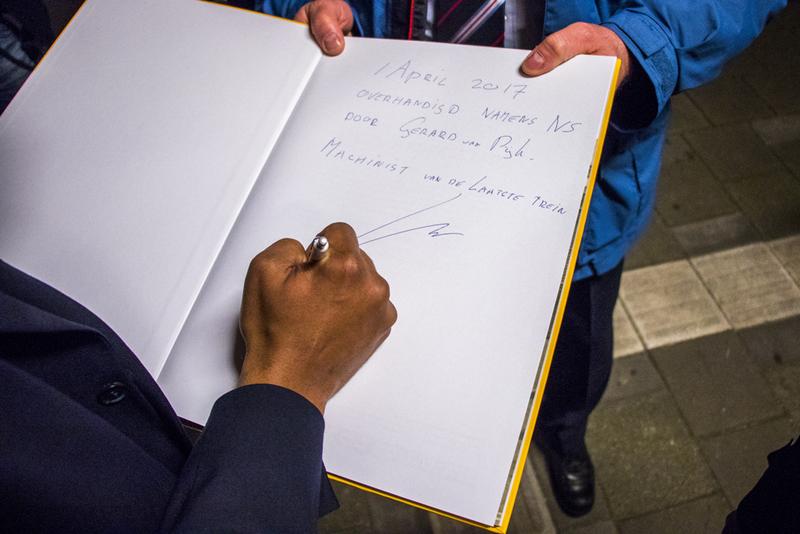 1 APRIL 2017
OVERHANDIGD NAMENS NS
DOOR GERARD van
MACHINIST VAN DE LAATSTE TREIN